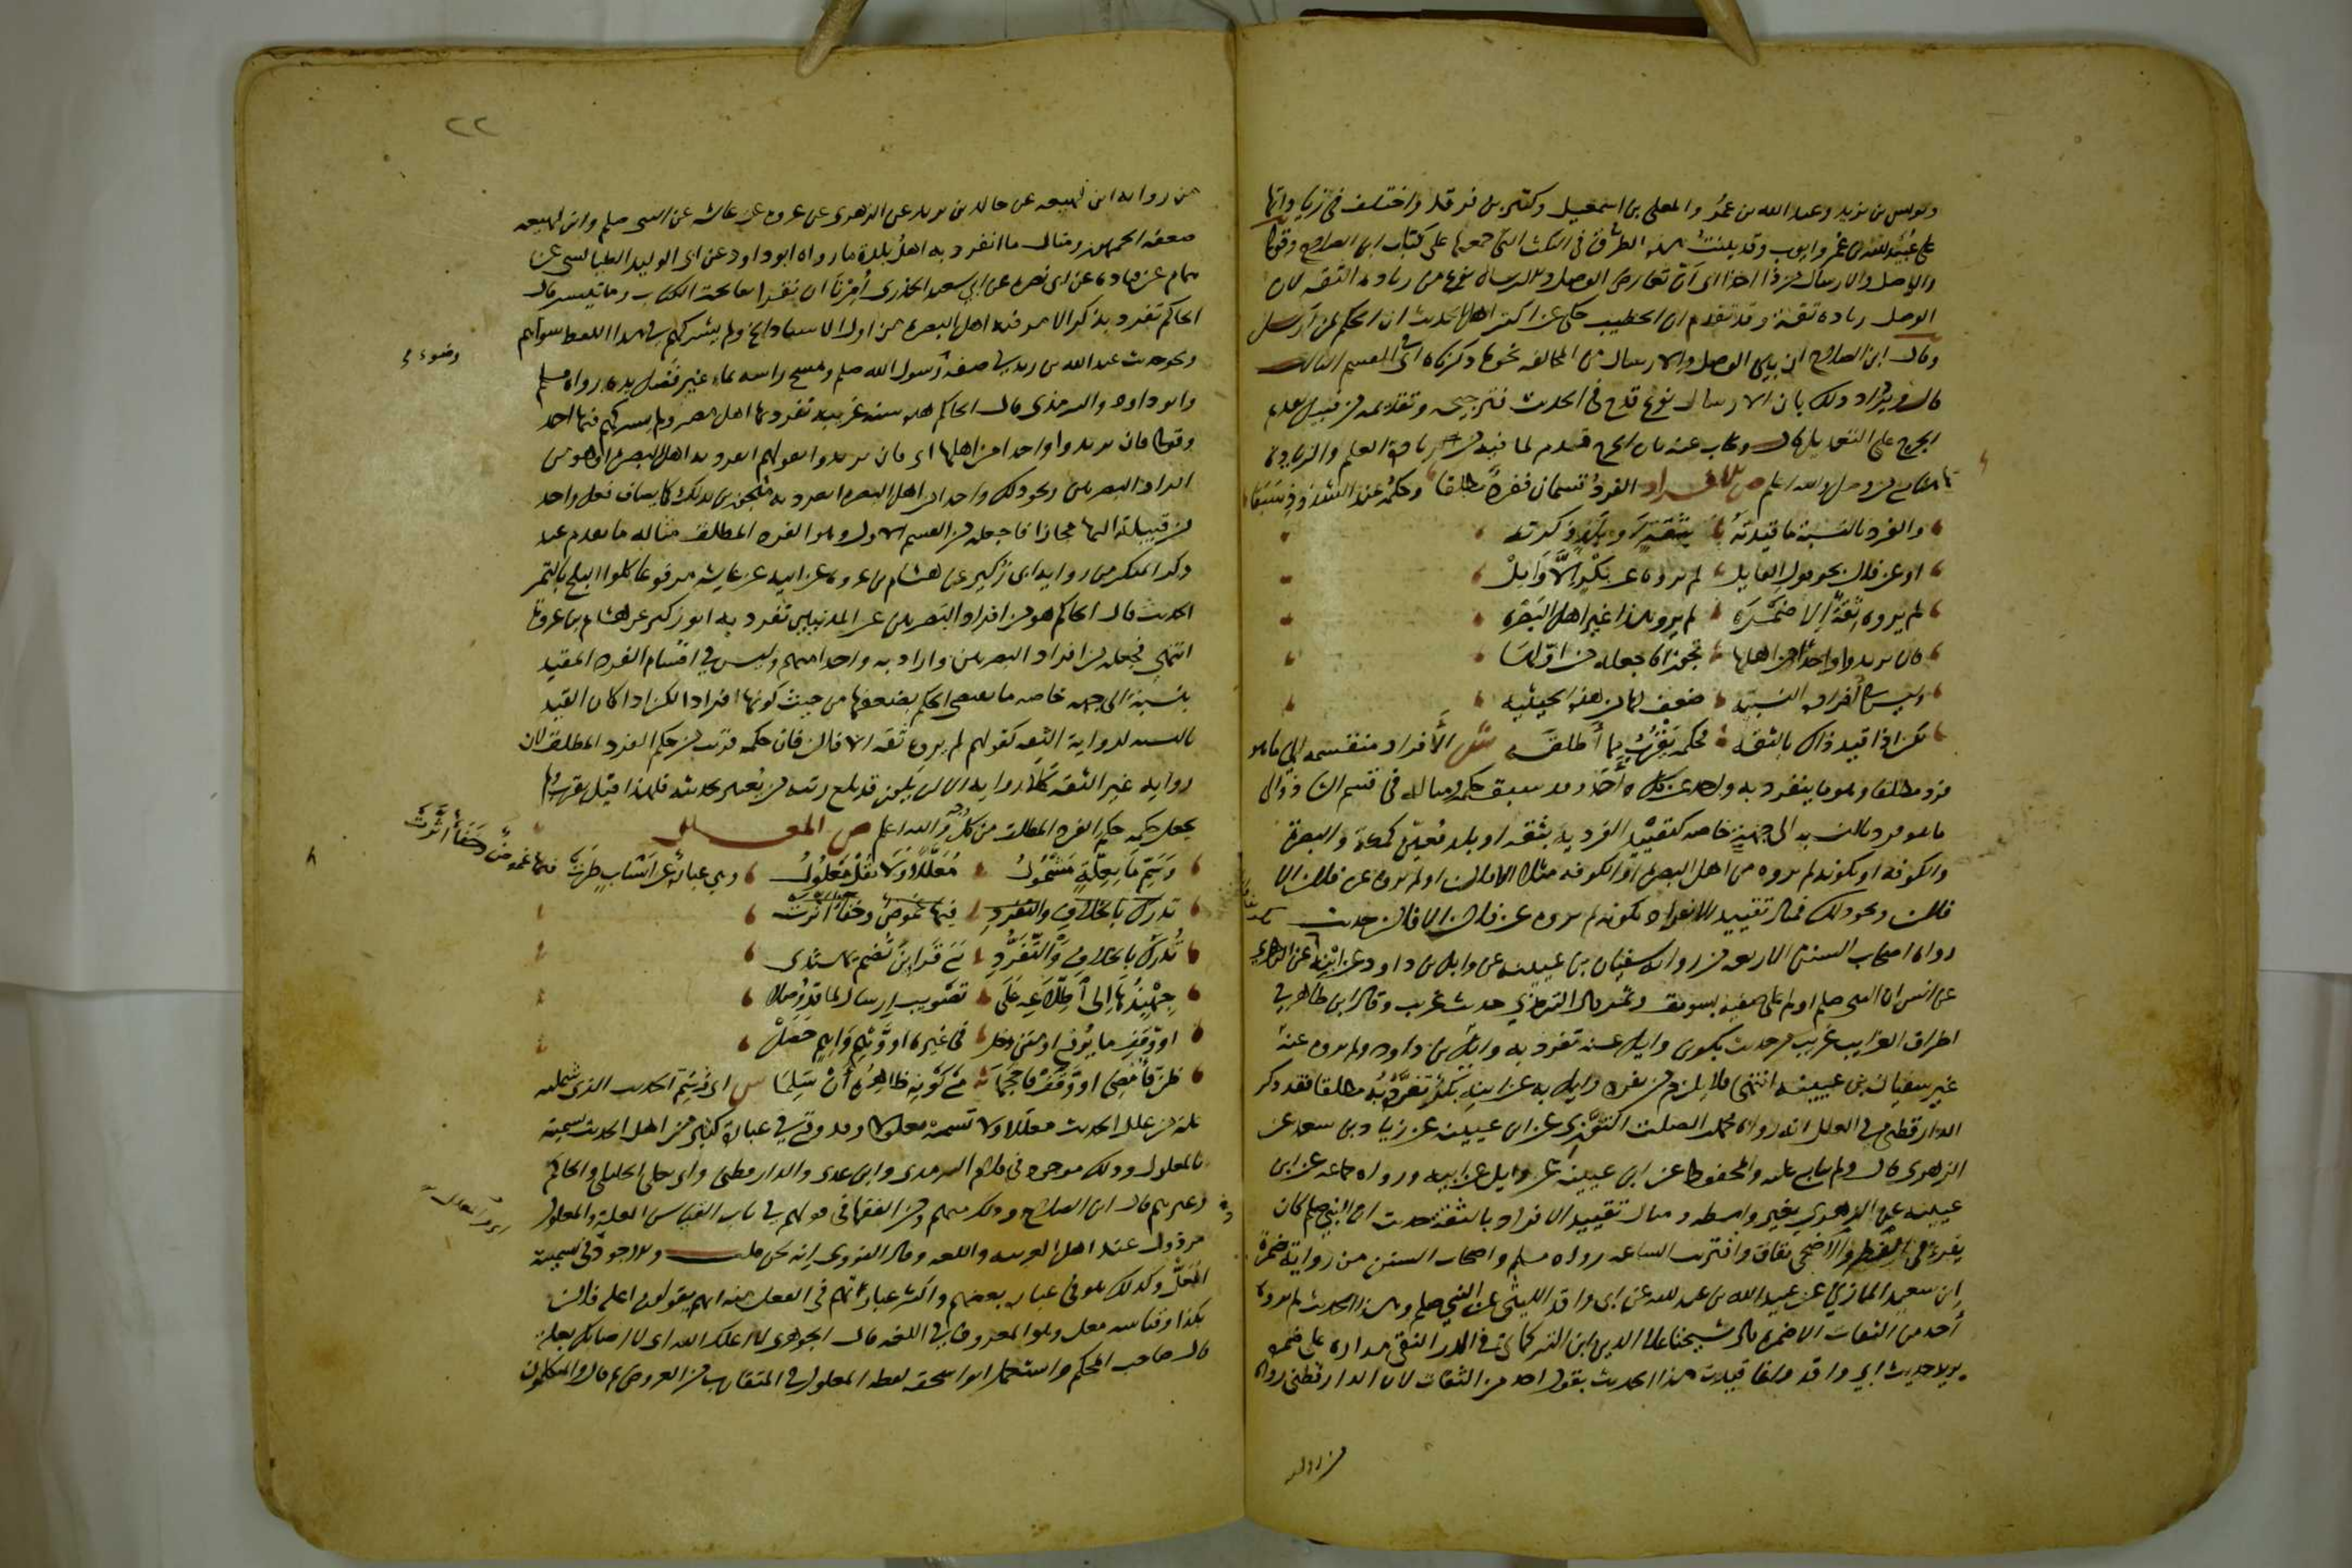 ويونس بن يزيد وعبد الله بن عمر والمعلى بن اسمعيل وكثير بن فرقد واختلف في زيادتها
على عبيد الله بن عمر وايوب وقد بينت هذه الطرق في النكت التي جمعتها على كتاب ابن الصلاح وقولي
والوصل والارسال من ذا اخذا اي ان تعارض الوصل والارسال نوع من زيادة الثقة لان
الوصل زيادة ثقة وقد تقدم ان الخطيب حكى عن اكثر اهل الحديث ان الحكم لمن ارسل
وقال ابن الصلاح ان بين الوصل والارسال من المخالفة نحو ما ذكرناه اي في القسم الثالث
قال ويزداد ذلك بان الارسال نوع قدح في الحديث فترجيحه وتقديمه من قبيل تقديم
الجرح على التعديل قال ويجاب عنه بان الجرح قدم لما فيه من زيادة العلم والزيادة
هاهنا مع من وصل والله اعلم ص الافراد الفرد قسمان ففرد مطلقا وحكمه عند الشذوذ سبقا
والفرد بالنسبة ما قيدته بثقة او بلد ذكرته
او عن فلان نحو قول القايل لم يروه عن بكر الا وايل
لم يروه ثقة الا ضمره لم يرو هذا غير اهل البصره
فان يريدوا واحدا من اهلها تجوزا فاجعله من اولها
وليس في افراده النسبية ضعف لها من هذه الحيثيه
لكن اذا قيد ذاك بالثقه فحكمه يقرب مما اطلقه ش الافراد منقسمة الى ما هو
فرد مطلقا وهو ما ينفرد به واحد عن كل احد وقد سبق حكمه ومثاله في قسم الشاذ والى
ما هو فرد بالنسبة الى جهة خاصة كتقييد الفردية بثقة او بلد معين كمكة والبصرة
والكوفة او بكونه لم يروه من اهل البصرة او الكوفة مثلا الا فلان او لم يروه عن فلان الا
فلان ونحو ذلك فمثال تقييد الانفراد بكونه لم يروه عن فلان الا فلان حديث
رواه اصحاب السنن الاربعة من رواية سفيان بن عيينه عن وايل بن داود عن ابنه عن الزهري
عن انس ان النبي صلم اولم على صفية بسويق وتمر قال الترمذي حديث غريب وقال ابن طاهر في
اطراف الغرايب غريب من حديث بكر بن وايل عنه تفرد به وايل بن داود ولم يروه عنه
غير سفيان بن عيينه انتهى فلا يلزم من تفرد وايل به عن ابنه بكر تفرده به مطلقا فقد ذكر
الدارقطني في العلل انه رواه محمد بن الصلت التوزي عن ابن عيينه عن زياد بن سعد عن
الزهري قال ولم يتابع عليه والمحفوظ عن ابن عيينة عن وايل عن ابيه ورواه جماعة عن ابن
عيينه عن الزهري بغير واسطه ومثال تقييد الانفراد بالثقة حديث ان النبي صلم كان
يقرء في الفطر والاضحى بقاف واقتربت الساعه رواه مسلم واصحاب السنن من رواية ضمرة
بن سعيد المازني عن عبيد الله بن عبد الله عن ابي واقد الليثي عن النبي صلم وهذا الحديث لم يروه
احد من الثقات الا ضمره قال شيخنا علاء الدين ابن التركماني في الدر النقي مداره على ضمره
حديث ابي واقد وانما قيدت هذا الحديث بقولي احد من الثقات لان الدارقطني رواه
من رواية
٢٢
من رواية ابن لهيعه عن خالد بن يزيد عن الزهري عن عروه عن عايشه عن النبي صلم وابن لهيعه
ضعفه الجمهور ومثال ما انفرد به اهل بلدة ما رواه ابو داود عن ابي الوليد الطيالسي عن
همام عن قتاده عن ابي نضره عن ابي سعيد الخدري أمرنا ان نقرا بفاتحة الكتاب وما تيسر قال
الحاكم تفرد بذكر الامر فيه اهل البصره من اول الاسناد الى اخره ولم يشركهم في هذا اللفظ سواهم
ونحو حديث عبد الله بن زيد في صفة وضوء رسول الله صلم ومسح راسه بماء غير فضل يده رواه مسلم
وابو داود والترمذي قال الحاكم هذه سنة غريبة تفرد بها اهل مصر ولم يشركهم فيها احد
وقولي فان يريدوا واحدا من اهلها اي فان يريدوا بقولهم انفرد به اهل البصره او هو من
افراد البصريين ونحو ذلك واحدا من اهل البصره انفرد به متجوزين بذلك كما يضاف فعل واحد
من قبيلة اليها مجازا فاجعله من القسم الاول وهو الفرد المطلق مثاله ما تقدم عند
ذكر المنكر من رواية ابي زكير عن هشام بن عروه عن ابيه عن عايشه مرفوعا كلوا البلح بالتمر
الحديث قال الحاكم هو من افراد البصريين عن المدنيين تفرد به ابو زكير عن هشام بن عروة
انتهى فجعله من افراد البصريين واراد به واحدا منهم وليس في اقسام الفرد المقيد
بنسبة الى جهة خاصه ما يقتضي الحكم بضعفها من حيث كونها افرادا لكن اذا كان القيد
بالنسبة لرواية الثقه كقولهم لم يروه ثقه الا فلان فان حكمه قريب من حكم الفرد المطلق لان
رواية غير الثقة كلا رواية الا ان يكون قد بلغ رتبة من يعتبر بحديثه فلهذا قيل يقرب ولم
يجعل حكمه حكم الفرد المطلق من كل وجه والله اعلم ص المعلل
وسم ما بعلة مشمول معللا ولا تقل معلول
وهي عبارة عن اسباب طرت فيها غموض وخفاء اثرت
تدرك بالخلاف والتفرد فيها غموض وخفاء اثرت
تدرك بالخلاف والتفرد مع قراين تضم يهتدى
جهبذها الى اطلاعه على تصويب ارسال لما قد وصلا
او وقف ما يرفع او متن دخل في غيره او وهم واهم حصل
ظن فامضى او وقف فاحجما مع كونه ظاهره ان سلما ش اي وسم الحديث الذي شملته
علة من علل الحديث معللا ولا تسمه معلولا وقد وقع في عبارة كثير من اهل الحديث تسميته
بالمعلول وذلك موجود في كلام الترمذي وابن عدي والدارقطني وابي يعلى الخليلي والحاكم
وغيرهم قال ابن الصلاح وذلك منهم ومن الفقهاء في قولهم في باب القياس العلة والمعلول
مرذول عند اهل العربيه واللغه وقال النووي انه لحن قلت والاجود في تسميته
المعل وكذلك هو في عبارة بعضهم واكثر عباراتهم في الفعل منه انهم يقولون اعله فلان
بكذا وقياسه معل وهو المعروف في اللغه قال الجوهري لا اعلك الله اي لا اصابك بعلة
قال صاحب المحكم واستعمل ابو اسحق لفظه المعلول في المتقارب من العروض ثم قال والمتكلمون
وضوء